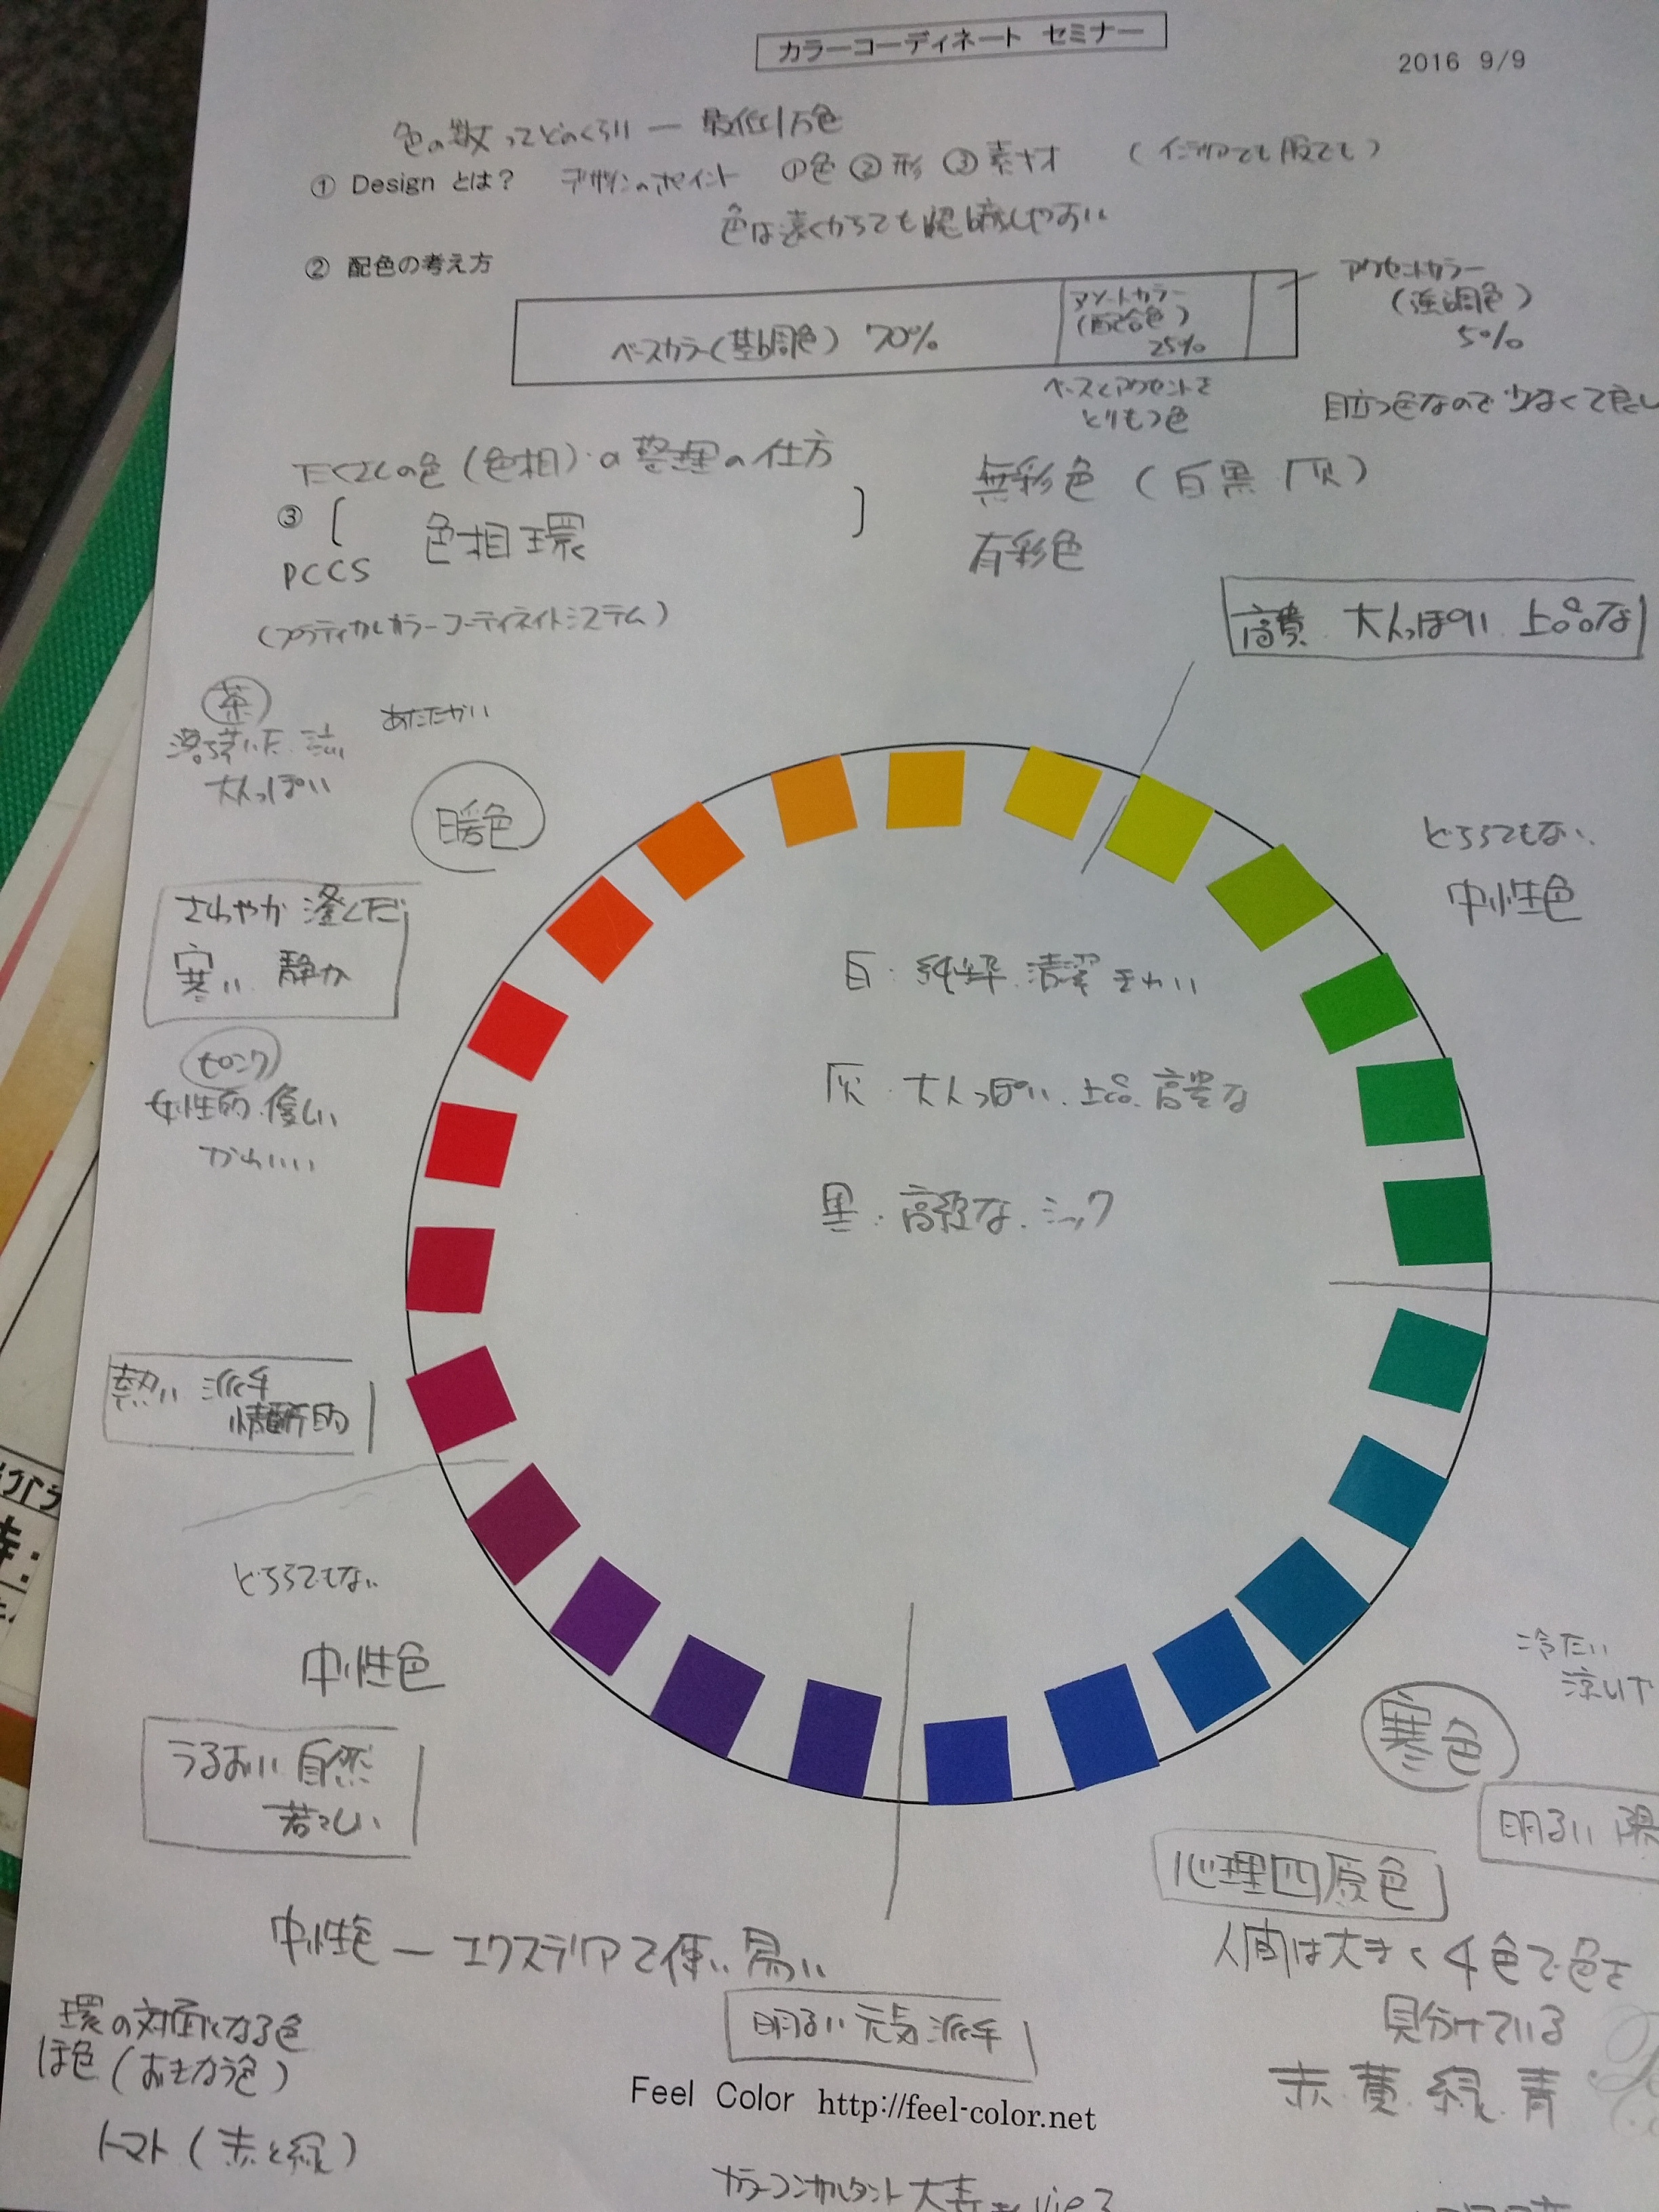 カラーコーディネート セミナー
2016 9/9
色の数ってどのくらい ー 最低1万色
① Design とは? デザインのポイント ①色 ②形 ③素材 (インテリアでも服でも)
色は遠くからでも認識しやすい
② 配色の考え方
ベースカラー(基調色) 70%
アソートカラー
(配合色)
25%
アクセントカラー
(強調色)
5%
ベースとアクセントを
とりもつ色
目立つ色なので少なくて良い
たくさんの色(色相)の整理の仕方
③ [ 色相環 ]
PCCS
(プラクティカルカラーコーディネイトシステム)
無彩色 (白 黒 灰)
有彩色
高貴 大人っぽい 上品な
茶
落ち着いた 渋い
大人っぽい
あたたかい
暖色
どちらでもない
中性色
さわやか 澄んだ
寒い 静か
ピンク
女性的 優しい
かわいい
白: 純粋 清潔 きれい
灰 大人っぽい 上品 高貴な
黒: 高級な シック
熱い 派手
情熱的
どちらでもない
中性色
うるおい 自然
若々しい
冷たい
涼しげ
寒色
明るい 陽
心理四原色
人間は大きく4色で色を
見分けている
赤 黄 緑 青
中性色 ー エクステリアで使い易い
明るい 元気 派手
環の対面になる色
ほ色(おぎなう色)
トマト(赤と緑)
Feel Color http://feel-color.net
カラーコンサルタント 大寿